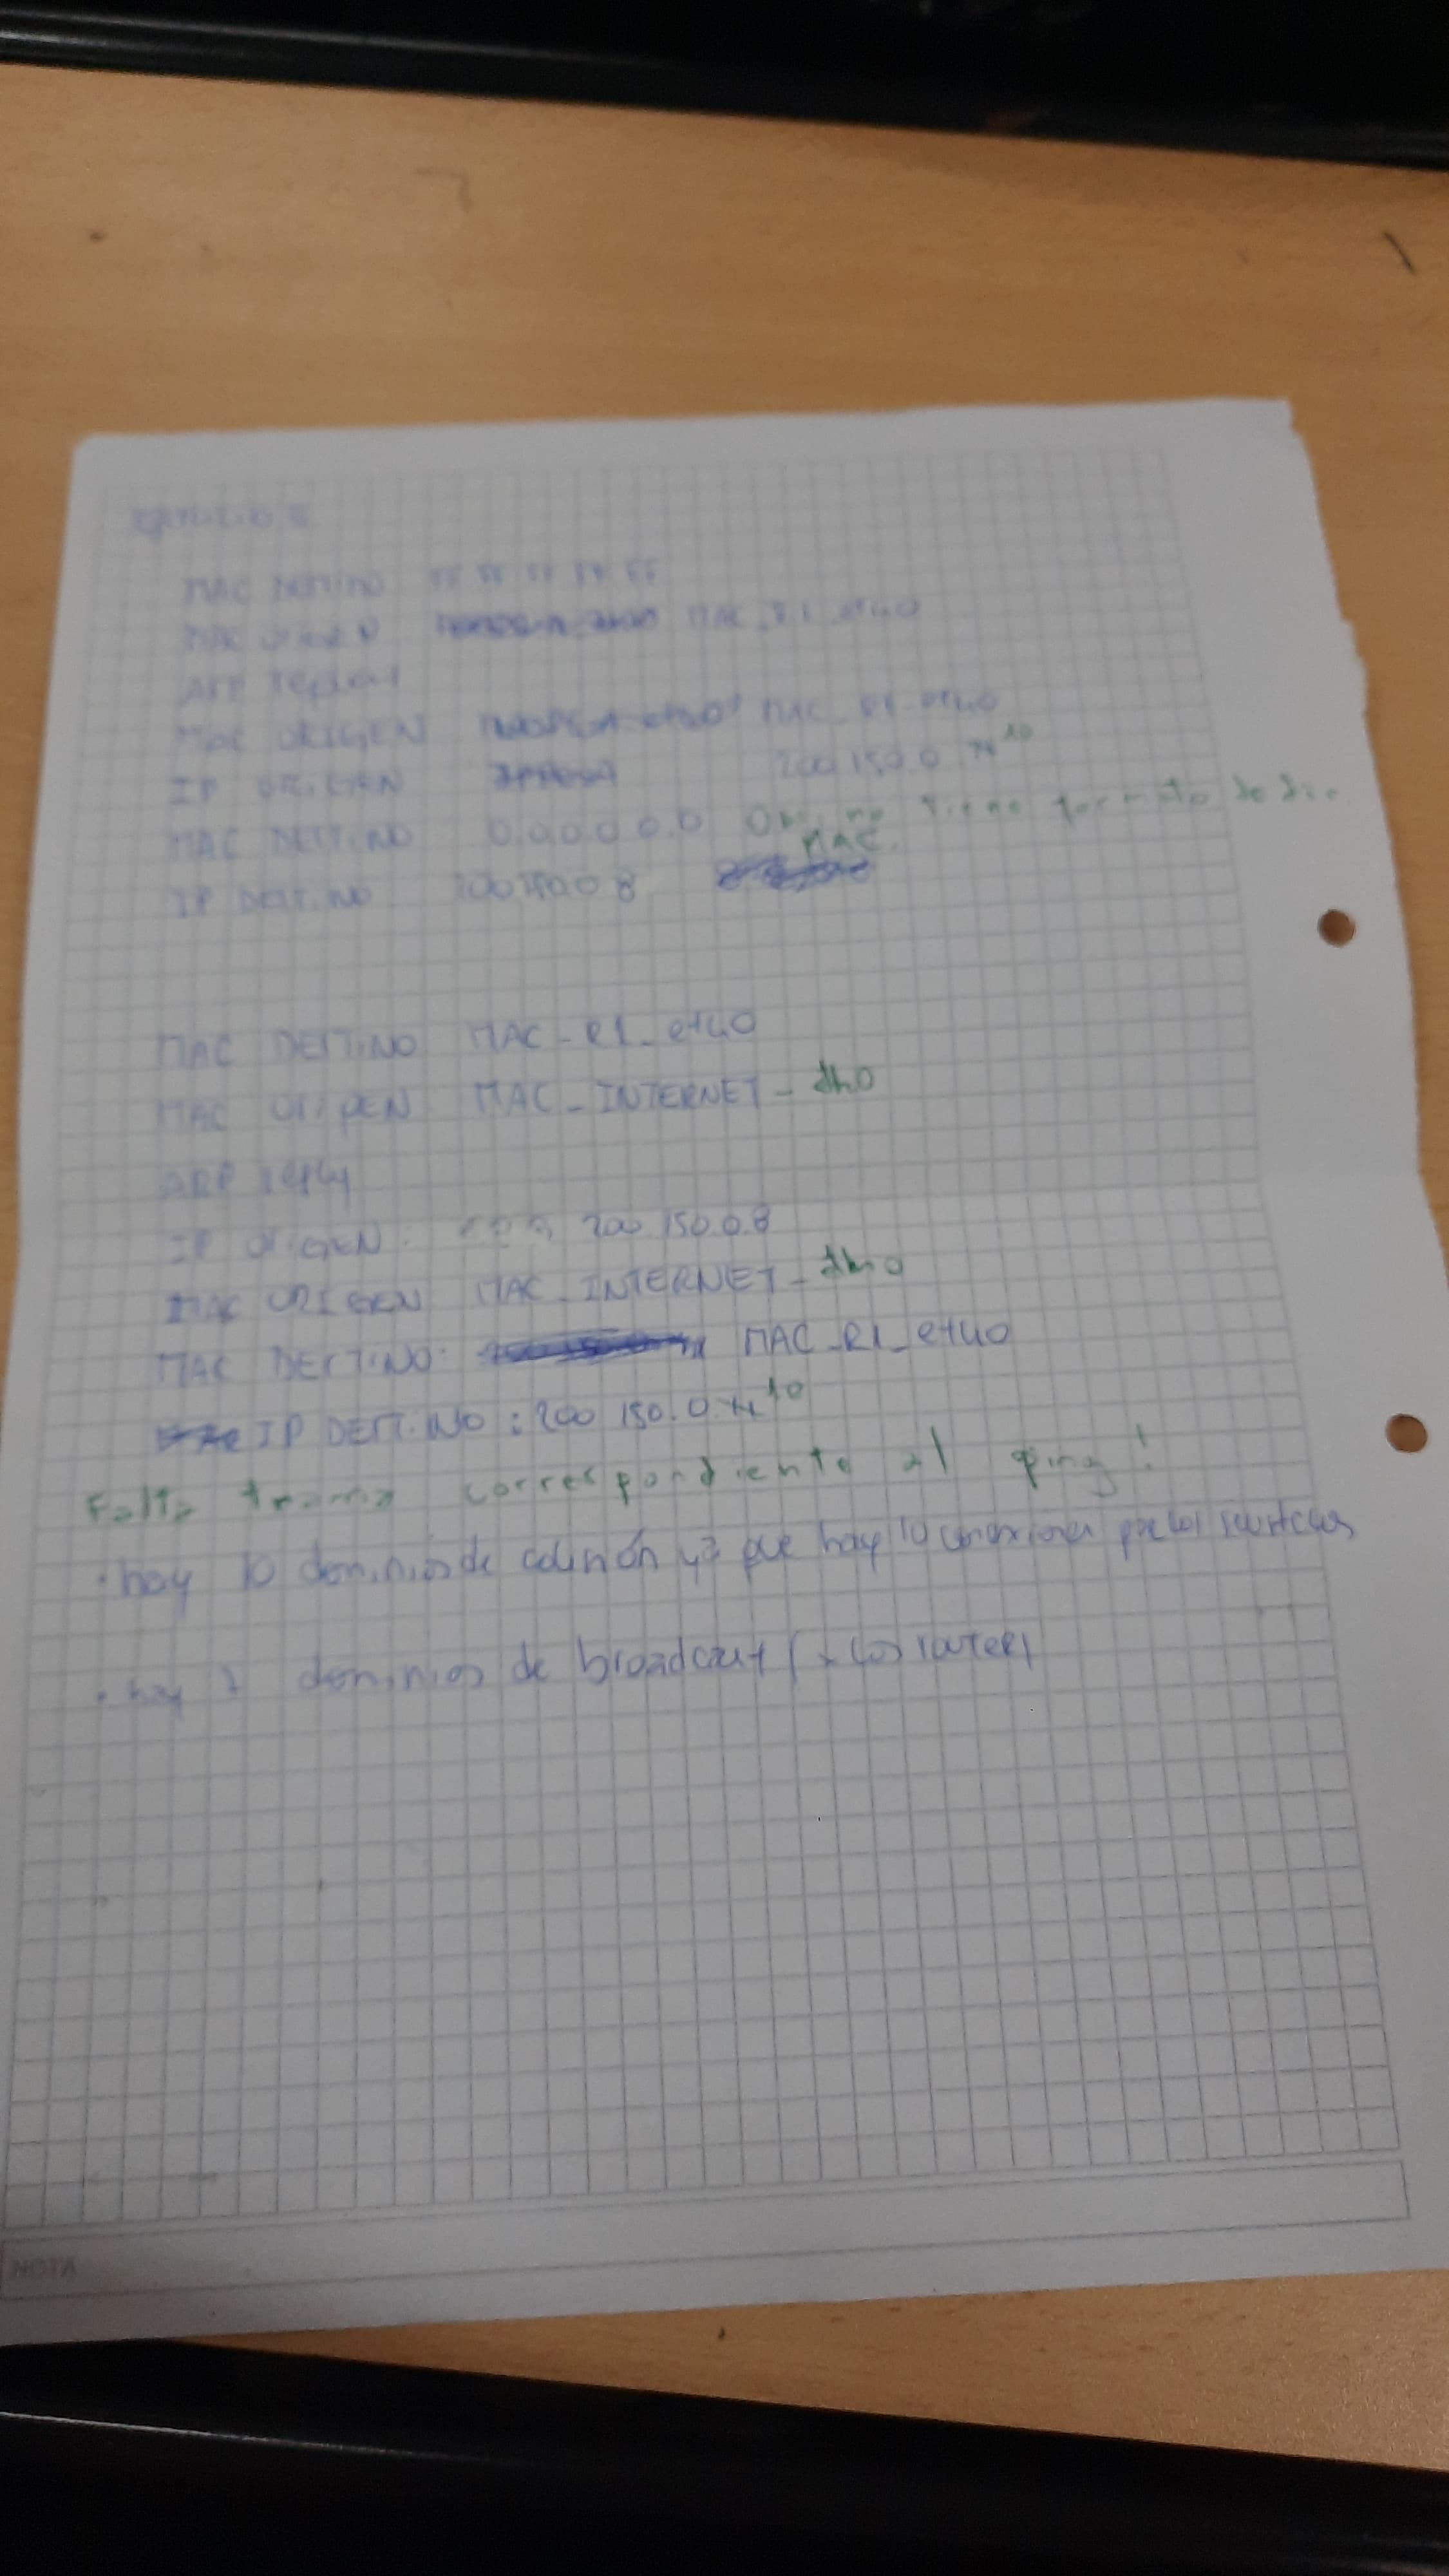 MAC DESTINO
MAC ORIGEN MAC_R1_eth0
ARP request
MAC ORIGEN MAC_R1_eth0
IP ORIGEN 200.150.0 10
MAC DESTINO 0.0.0.0.0.0 Obs: no tiene formato de dir.
MAC.
IP DESTINO 200.150.0.8
MAC DESTINO MAC_R1_eth0
MAC ORIGEN MAC_INTERNET_eth0
ARP reply
IP ORIGEN: 200.150.0.8
MAC ORIGEN MAC_INTERNET_eth0
MAC DESTINO: MAC_R1_eth0
IP DESTINO: 200.150.0. 10
Falta trama correspondiente al ping!
· hay 10 dominios de colisión ya que hay 10 conexiones por los switches
· hay dominios de broadcast los routers
NOTA